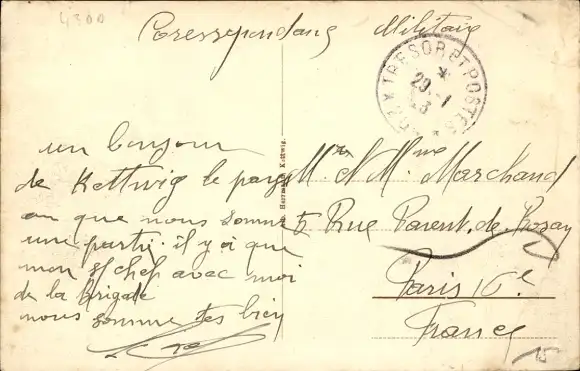 4300
Coressepondans Militaire
TRESOR ET POSTES
29-1
un bonjour
de Kettwig le pays
ou que nous somme
une partie il y a que
mon s/chef avec moi
de la Brigade
nous somme tes bien
Herrmann Kettwig.
Mr et Mme Marchand
5 Rue Parent de Rosan
Paris 16e
France
15